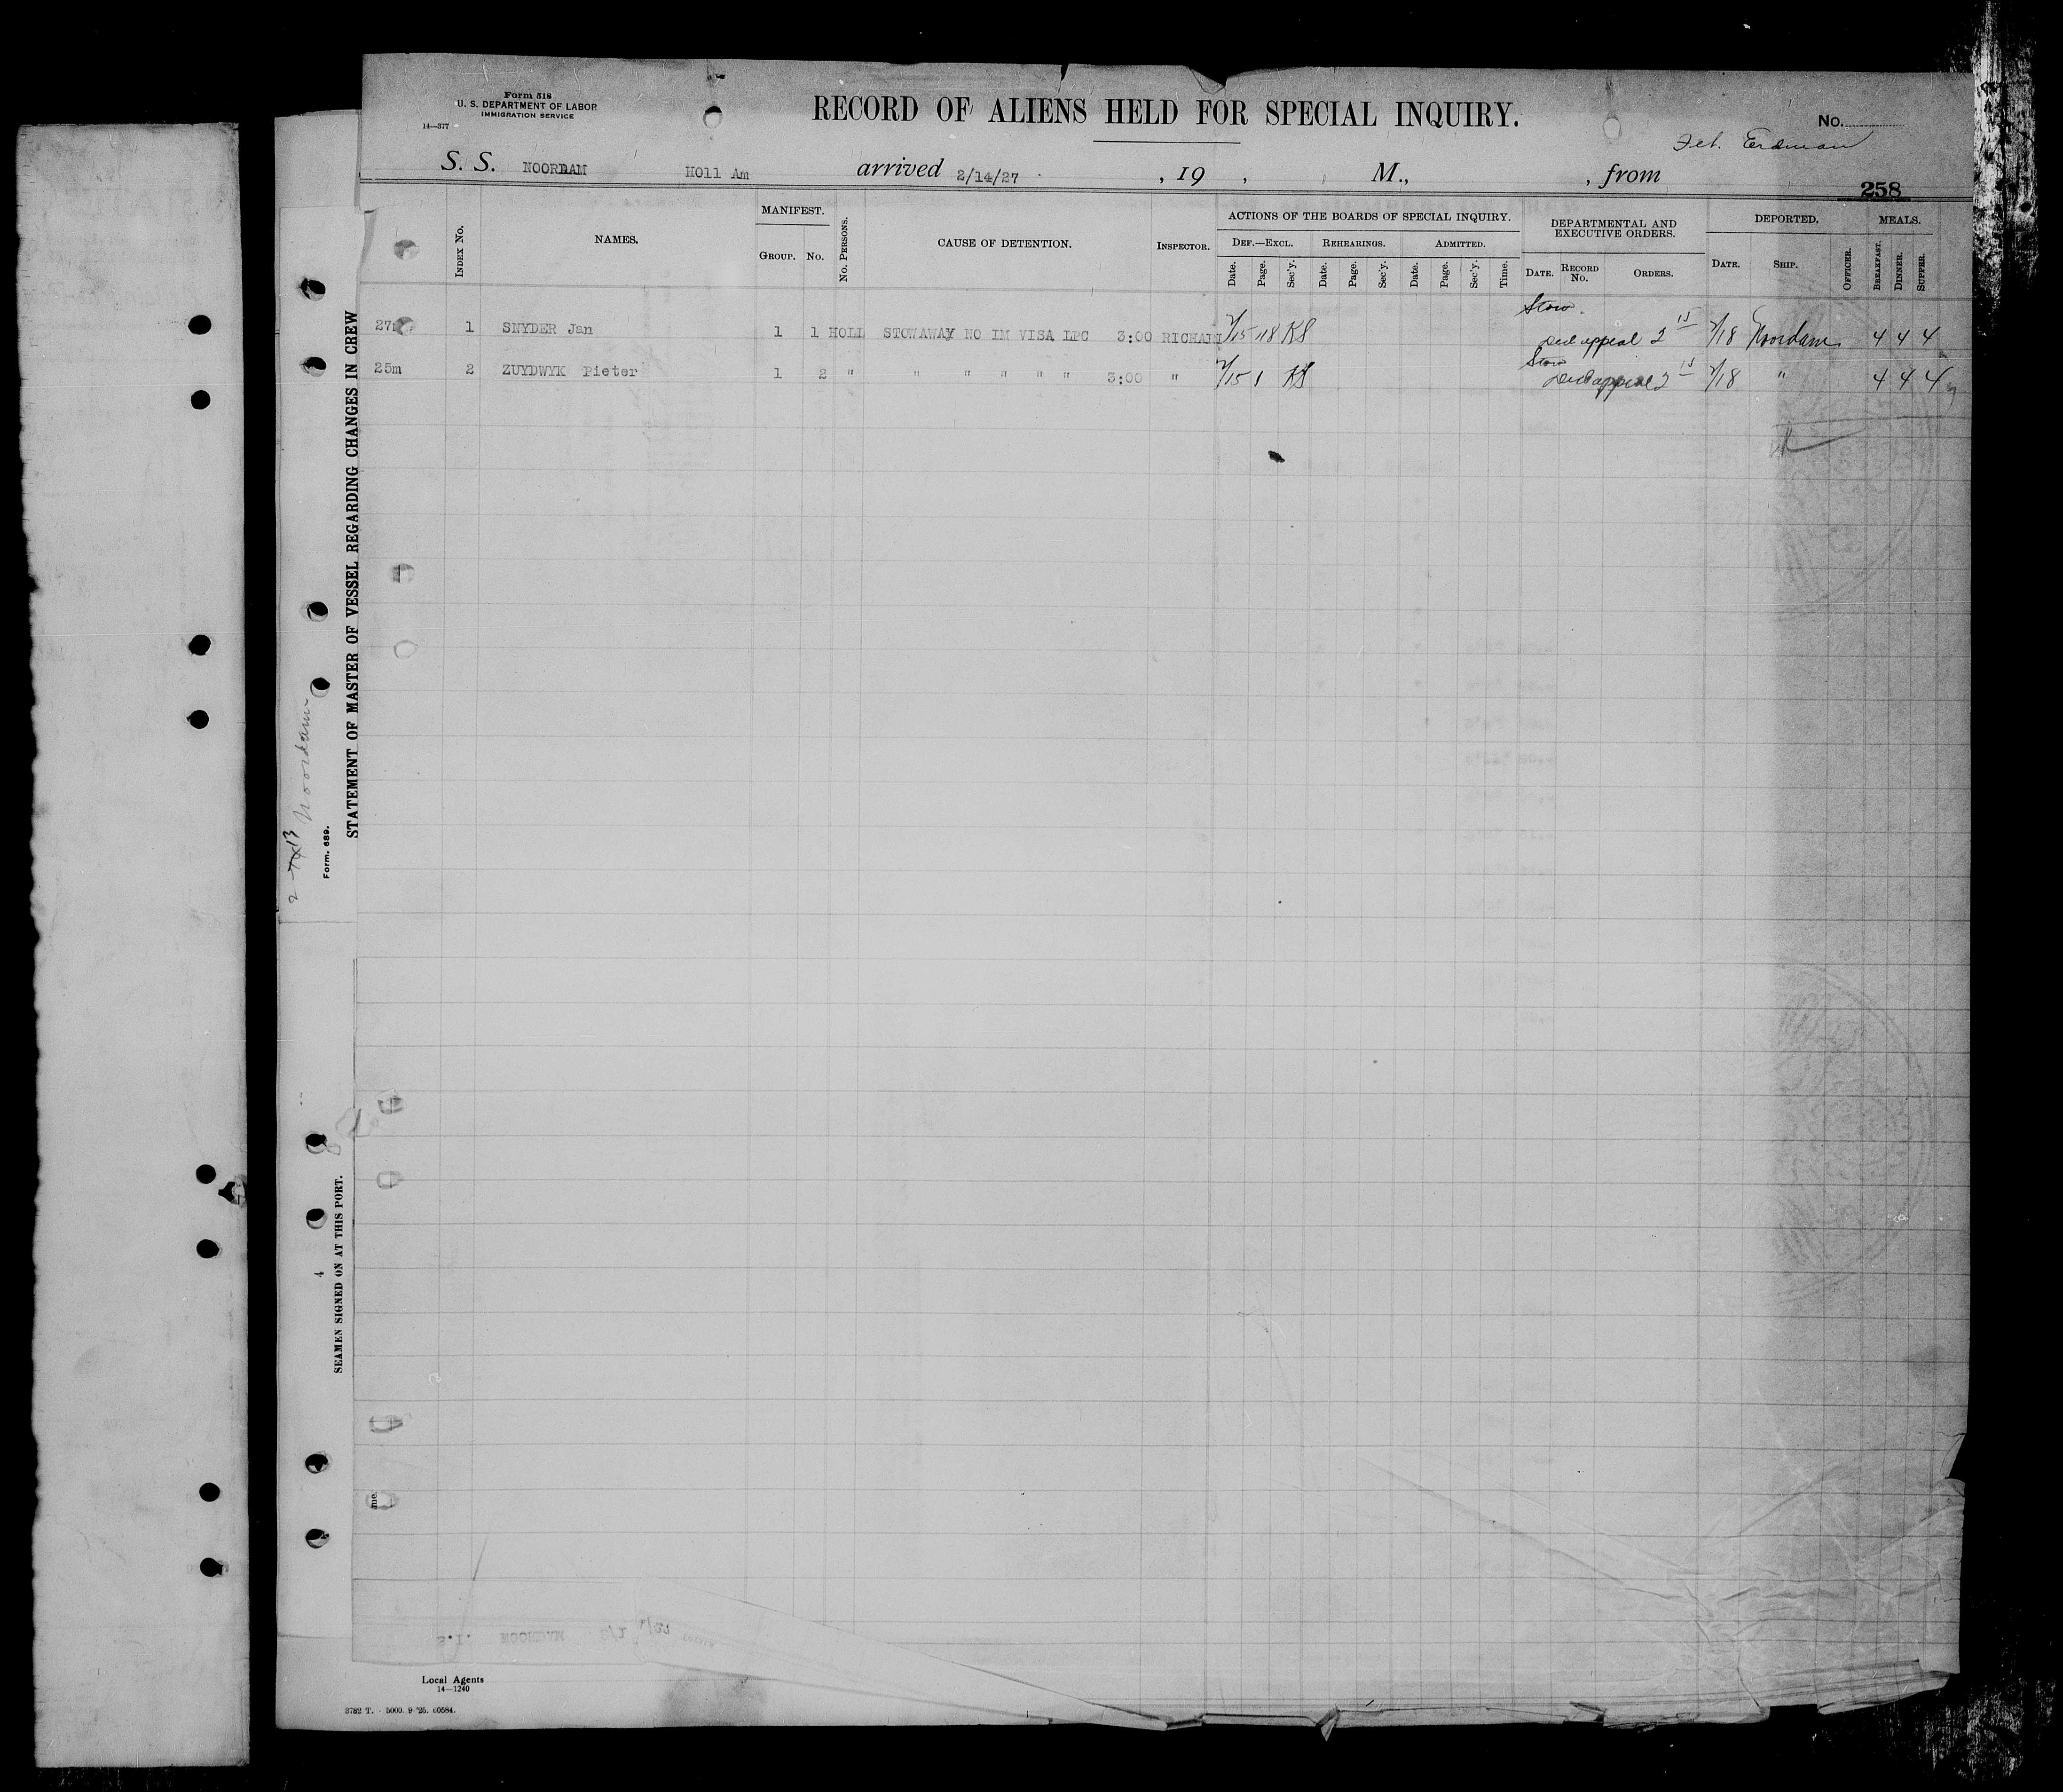 Form 518
U. S. DEPARTMENT OF LABOR
IMMIGRATION SERVICE
14—377
RECORD OF ALIENS HELD FOR SPECIAL INQUIRY.
No.
Erdman
S. S. NOORDAM Holl Am arrived 2/14/27 , 19 , M., , from
258
INDEX NO. NAMES. MANIFEST. GROUP. NO. NO. PERSONS. CAUSE OF DETENTION. INSPECTOR. ACTIONS OF THE BOARDS OF SPECIAL INQUIRY. DEF.—EXCL. Date. Page. Sec'y. REHEARINGS. Date. Page. Sec'y. ADMITTED. Date. Page. Sec'y. Time. DEPARTMENTAL AND EXECUTIVE ORDERS. DATE. RECORD NO. ORDERS. DEPORTED. DATE. SHIP. OFFICER. MEALS. BREAKFAST. DINNER. SUPPER.
Stow.
27m 1 SNYDER Jan 1 1 HOLL STOWAWAY NO IM VISA LPC 3:00 2/15 118 KS appeal 2 15 2/18 Noordam 4 4 4
Stow
25m 2 ZUYDWYK Pieter 1 2 " " " " " " 3:00 " 2/15 KS appeal 2 15 2/18 " 4 4 4
STATEMENT OF MASTER OF VESSEL REGARDING CHANGES IN CREW
Form. 689.
Noordam
SEAMEN SIGNED ON AT THIS PORT.
4
me
S.I. NOORDAM
Local Agents
14—1240
3782 T. - 5000. 9 '25. 60584.